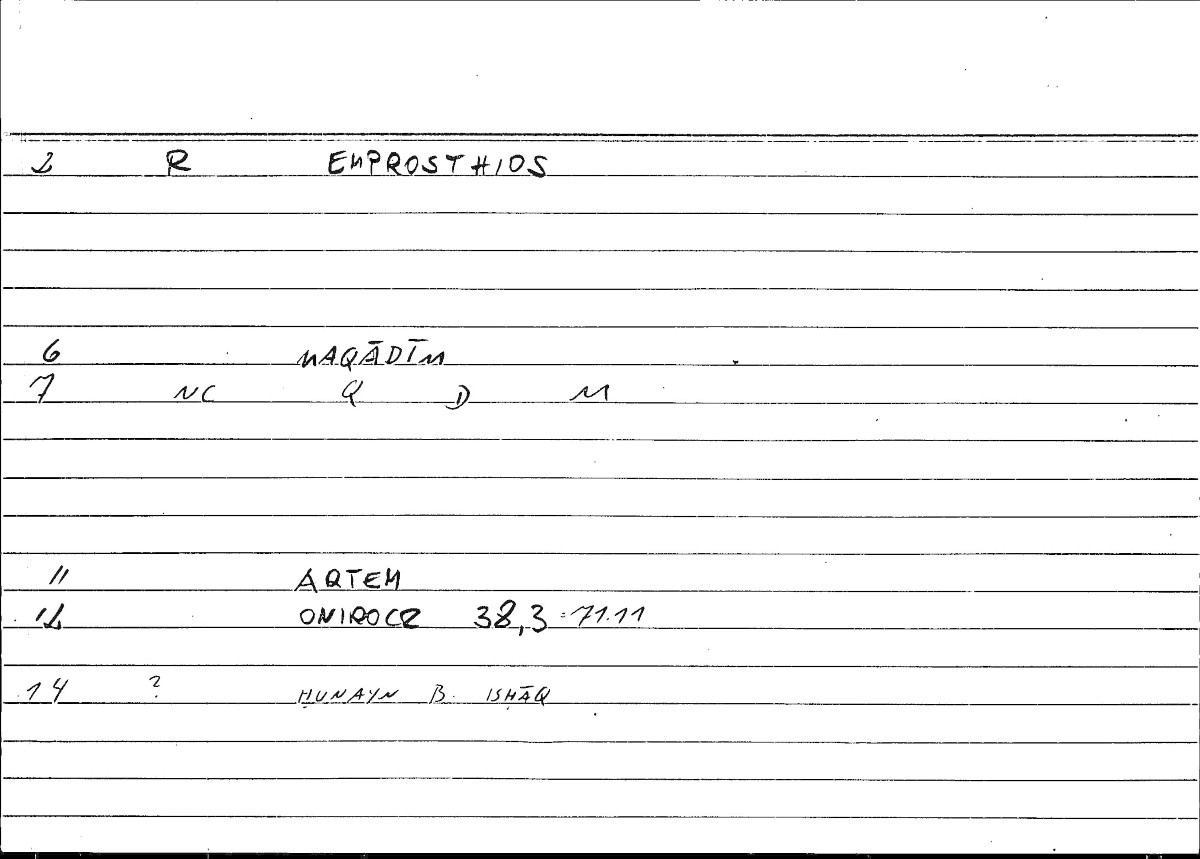 2 R EMPROSTHIOS
6 MAQĀDĪM
7 NC Q D M
11 ARTEM
12 ONIROCR 38,3 = 71.11
14 ? ḤUNAYN B. ISḤĀQ